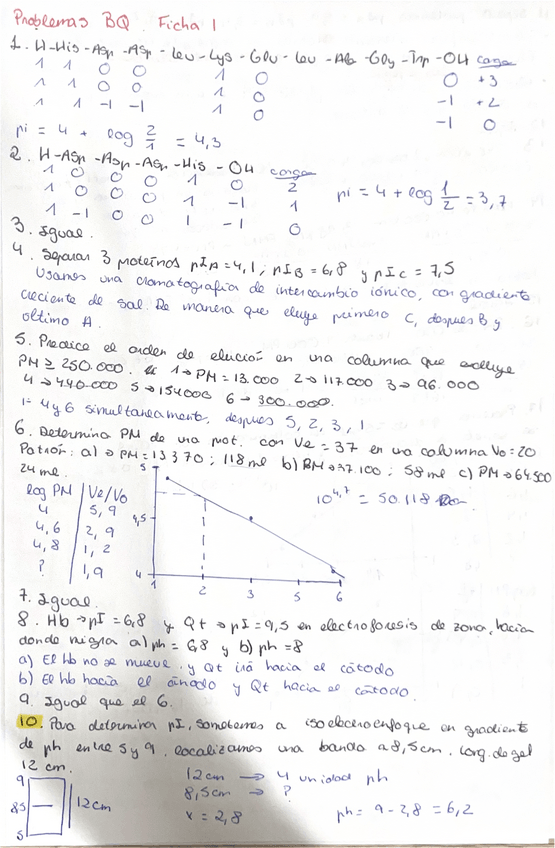 Problemas BQ. Ficha 1
1. H-His-Asp-Asp-Leu-Lys-Glu-Leu-Ala-Gly-Trp-OH carga
1 1 0 0 1 0 0 +3
1 1 0 0 1 0 -1 +2
1 1 -1 -1 1 0 -1 0
pi = 4 + log 2/1 = 4,3
2. H-Asp-Asp-Asp-His-OH carga
1 0 0 0 1 0 2
1 0 0 0 1 -1 1
1 -1 0 0 1 -1 0
pi = 4 + log 1/2 = 3,7
3. Igual.
4. Separar 3 proteínas pIA = 4,1; pIB = 6,8 y pIC = 7,5
Usamos una cromatografía de intercambio iónico, con gradiente
creciente de sal. De manera que eluye primero C, despues B y
último A.
5. Predice el orden de elución en una columna que excluye
PM ≥ 250.000. 1→PM = 13.000 2→117.000 3→96.000
4→440.000 5→154000 6→300.000.
1= 4 y 6 simultaneamente, despues 5, 2, 3, 1
6. Determina PM de una prot. con Ve = 37 en una columna Vo = 20
Patrón: a)→PM = 13370; 118 ml b) PM→37.100; 58 ml c) PM→64.500
24 ml.
log PM | Ve/Vo
4 | 5,9
4,6 | 2,9
4,8 | 1,2
? | 1,9
5
4,5
4
1 2 3 5 6
10^4,7 = 50.118
7. Igual.
8. Hb→pI = 6,8 y Qt→pI = 9,5 en electroforesis de zona, hacia
donde migra a) ph = 6,8 y b) ph = 8
a) El hb no se mueve y Qt irá hacia el cátodo
b) El hb hacia el ánodo y Qt hacia el cátodo.
9. Igual que el 6.
10. Para determinar pI, sometemos a isoelectroenfoque en gradiente
de ph entre 5 y 9. localizamos una banda a 8,5 cm. Long. de gel
12 cm.
9
8,5
5
12cm
12cm → 4 unidad ph
8,5cm → ?
x = 2,8
ph = 9 - 2,8 = 6,2